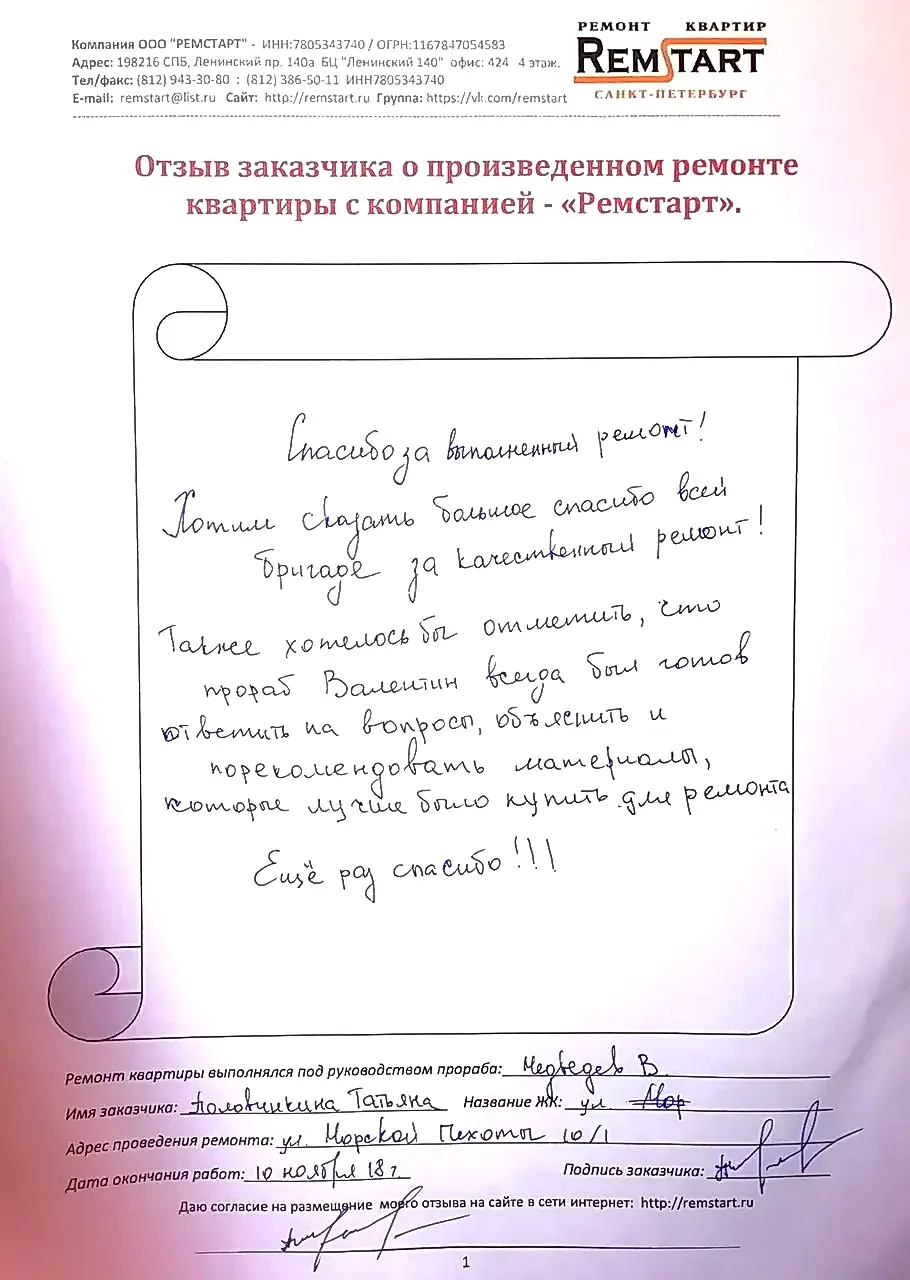 Компания ООО "РЕМСТАРТ" - ИНН:7805343740 / ОГРН:1167847054583
Адрес: 198216 СПБ, Ленинский пр. 140а БЦ "Ленинский 140" офис: 424 4 этаж.
Тел/факс: (812) 943-30-80 : (812) 386-50-11 ИНН7805343740
E-mail: remstart@list.ru Сайт: http://remstart.ru Группа: https://vk.com/remstart
РЕМОНТ КВАРТИР
REMSTART
САНКТ-ПЕТЕРБУРГ
Отзыв заказчика о произведенном ремонте
квартиры с компанией - «Ремстарт».
Спасибо за выполненный ремонт!
Хотим сказать большое спасибо всей
бригаде за качественный ремонт!
Также хотелось бы отметить, что
прораб Валентин всегда был готов
ответить на вопросы, объяснить и
порекомендовать материалы,
которые лучше было купить для ремонта
Ещё раз спасибо!!!
Ремонт квартиры выполнялся под руководством прораба: Медведев В.
Имя заказчика: Половчикина Татьяна Название ЖК: ул. Мор
Адрес проведения ремонта: ул. Морской Пехоты 10/1
Дата окончания работ: 10 ноября 18 г. Подпись заказчика:
Даю согласие на размещение моего отзыва на сайте в сети интернет: http://remstart.ru
1